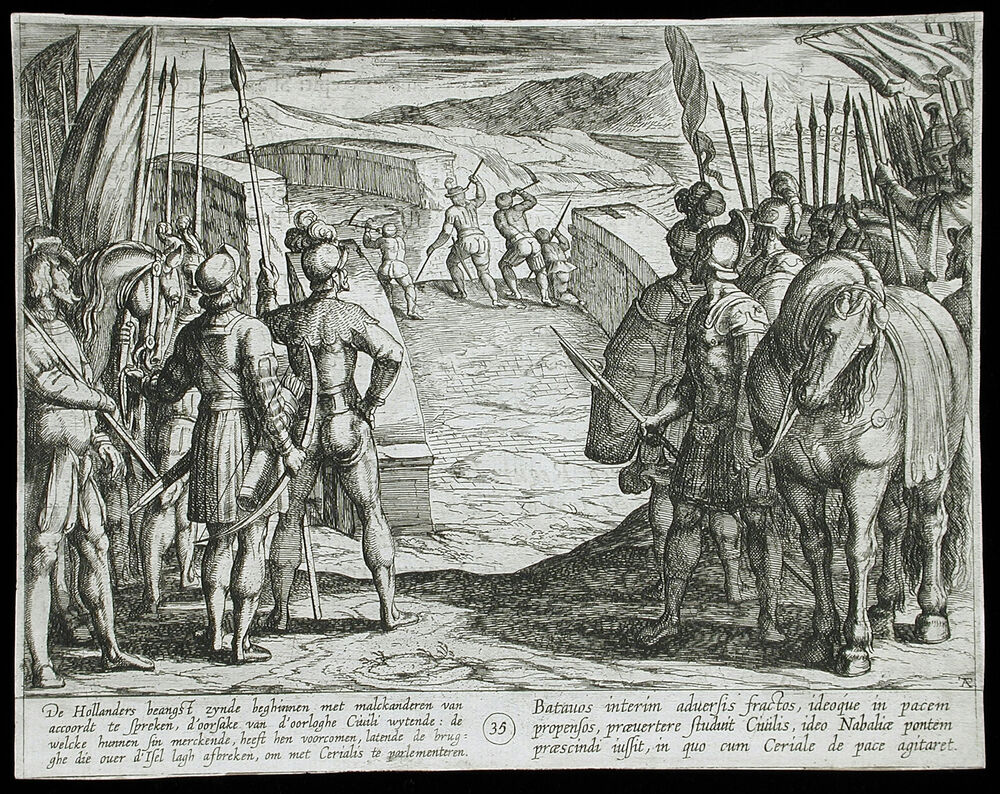 De Hollanders beangst zynde beghinnen met malckanderen van
accoordt te spreken, d'oorsake van d'oorloghe Ciuili wytende : de
welcke hunnen sin merckende, heeft hen voorcomen, latende de brug=
ghe die over d'Isel lagh afbreken, om met Cerialis te parlementeren.
35
Batauos interim aduersis fractos, ideoque in pacem
propensos, præuertere studuit Ciuilis, ideo Nabaliæ pontem
præscindi iussit, in quo cum Ceriale de pace agitaret.